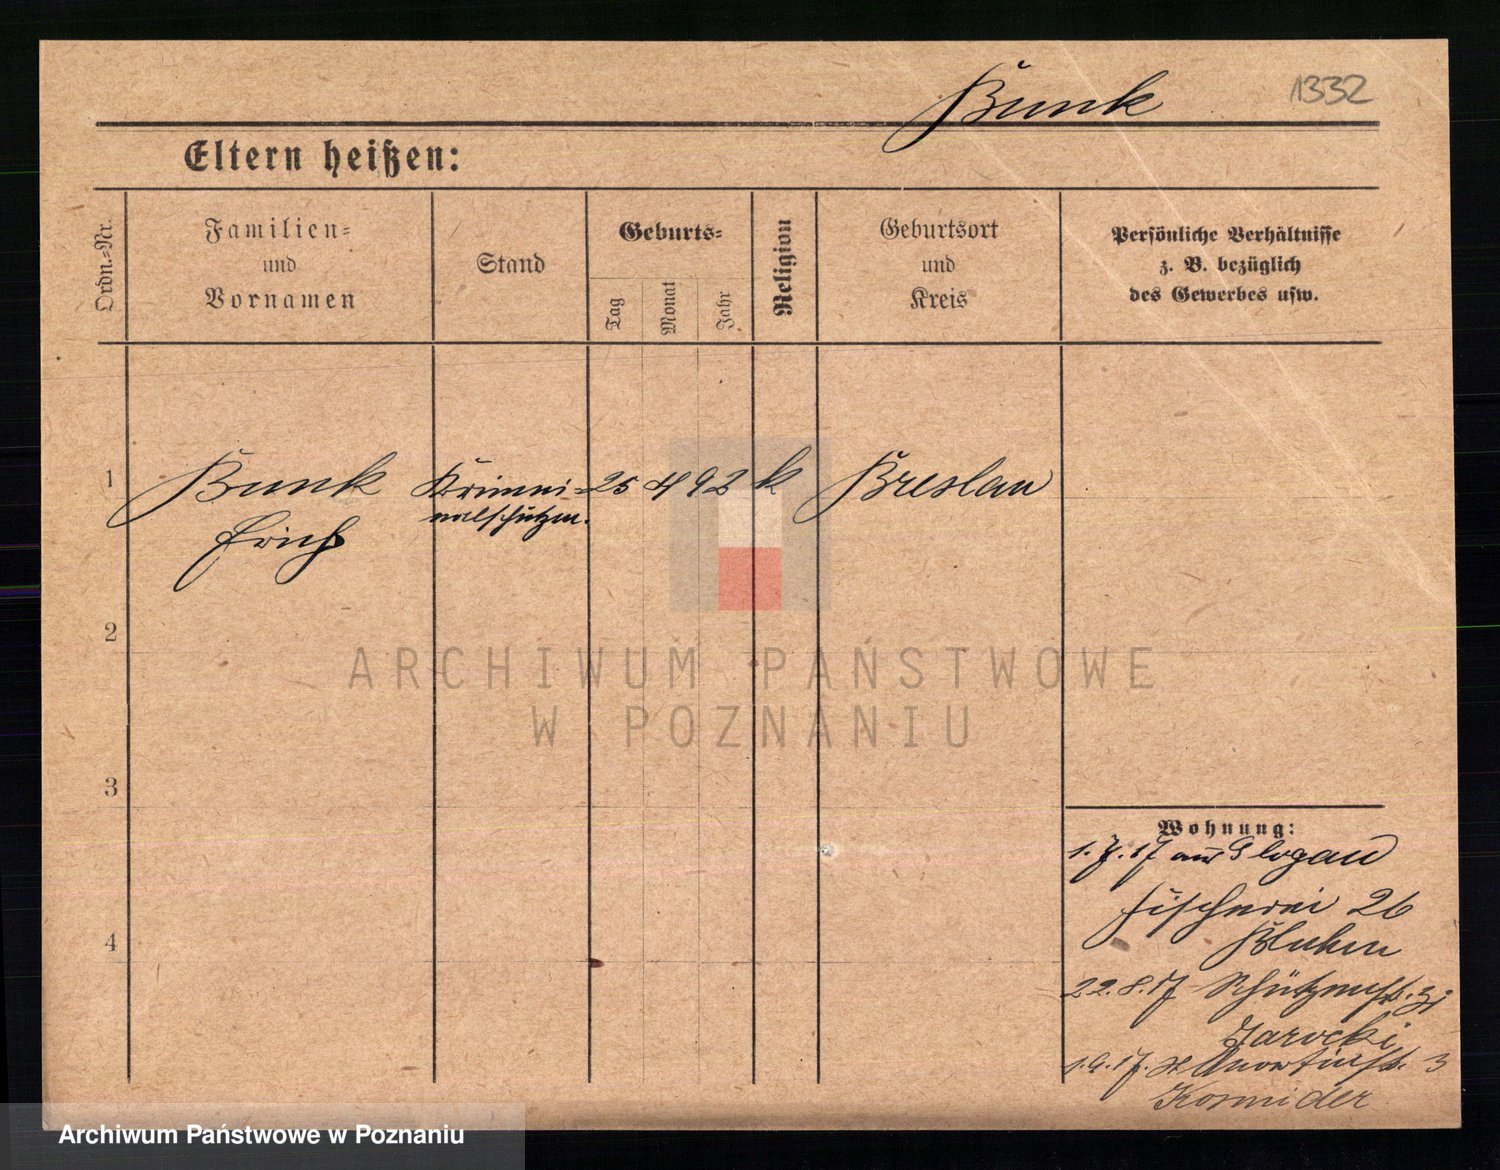 Bunk
1332
Eltern heißen:
Ordn.-Nr.
Familien-
und
Vornamen
Stand
Geburts-
Tag
Monat
Jahr
Religion
Geburtsort
und
Kreis
Persönliche Verhältnisse
z. B. bezüglich
des Gewerbes usw.
1
Bunk
Erich
Krimi-
nalschutzm.
25
4
93
k
Breslau
2
3
4
Wohnung:
1.7.17 aus Glogau
Fischerei 26
Bluhm
22.8.17 Schützenstr. 31
Jarocki
1.9.17. 3
Kosmider
ARCHIWUM PAŃSTWOWE
W POZNANIU
Archiwum Państwowe w Poznaniu